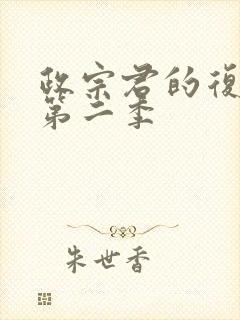 政宗君的復
第二季
朱世香